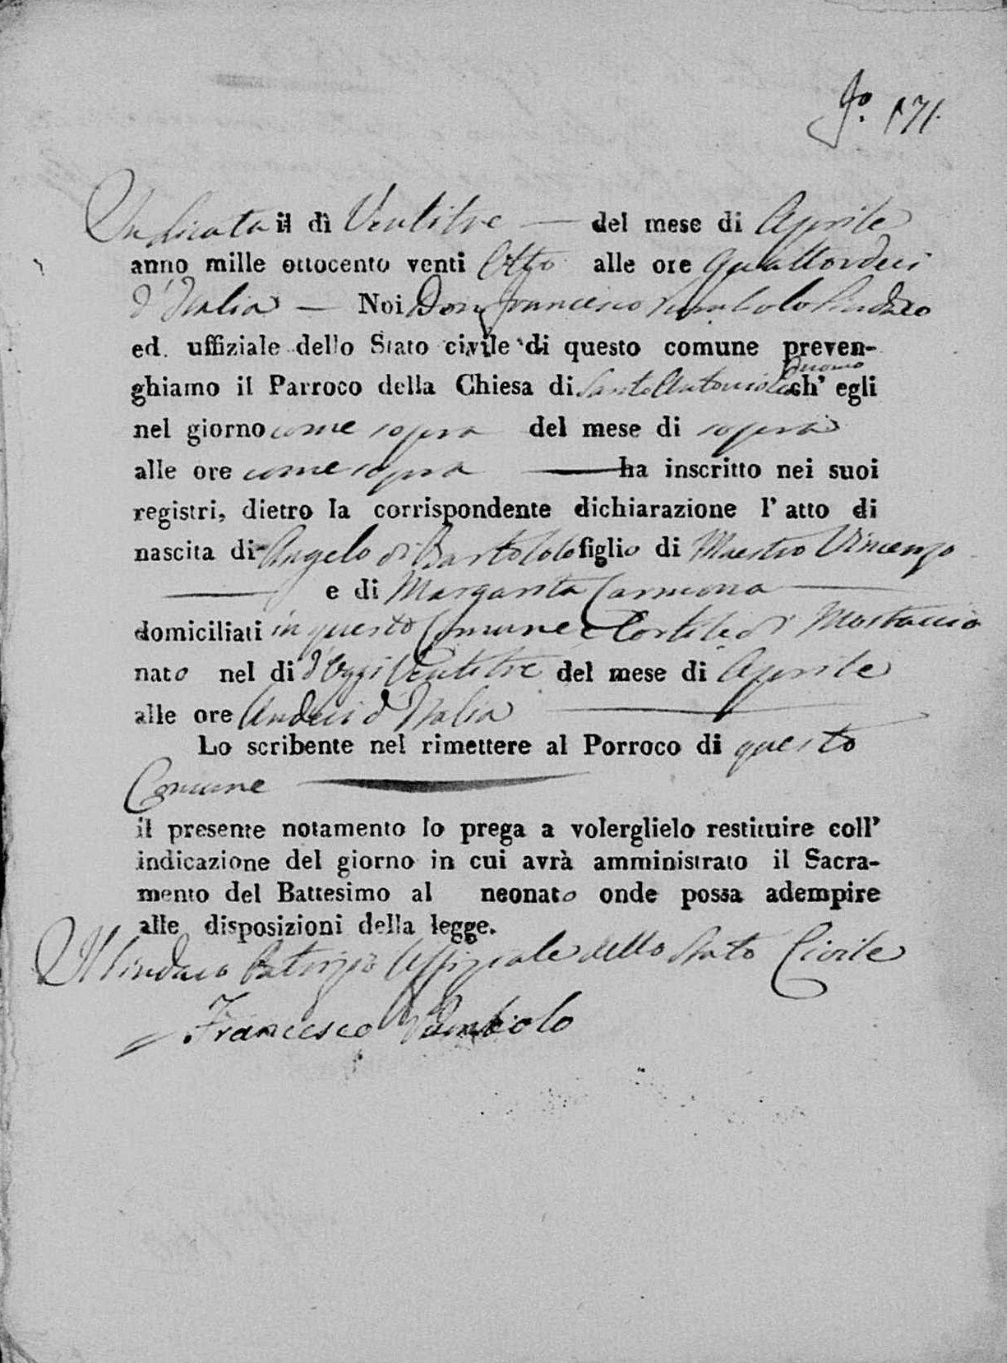 171.
Indicata il dì Ventitre del mese di Aprile
anno mille ottocento venti Otto alle ore Quattordeci
d'Italia — Noi Don Francesco Sindaco
ed uffiziale dello Stato civile di questo comune preven-
Duomo
ghiamo il Parroco della Chiesa di Sant'Antonio ch' egli
nel giorno come sopra del mese di sopra
alle ore come sopra ha inscritto nei suoi
registri, dietro la corrispondente dichiarazione l' atto di
nascita di Angelo di Bartololo figlio di Maestro Vincenzo
e di Margarita Carmona
domiciliati in questo Comune e Cortile di Mostaccio
nato nel di d'Oggi Ventitre del mese di Aprile
alle ore Undeci d'Italia
Lo scribente nel rimettere al Porroco di questo
Comune
il presente notamento lo prega a volerglielo restituire coll'
indicazione del giorno in cui avrà amministrato il Sacra-
mento del Battesimo al neonato onde possa adempire
alle disposizioni della legge.
Il Sindaco Patrizio Uffiziale dello Stato Civile
Francesco